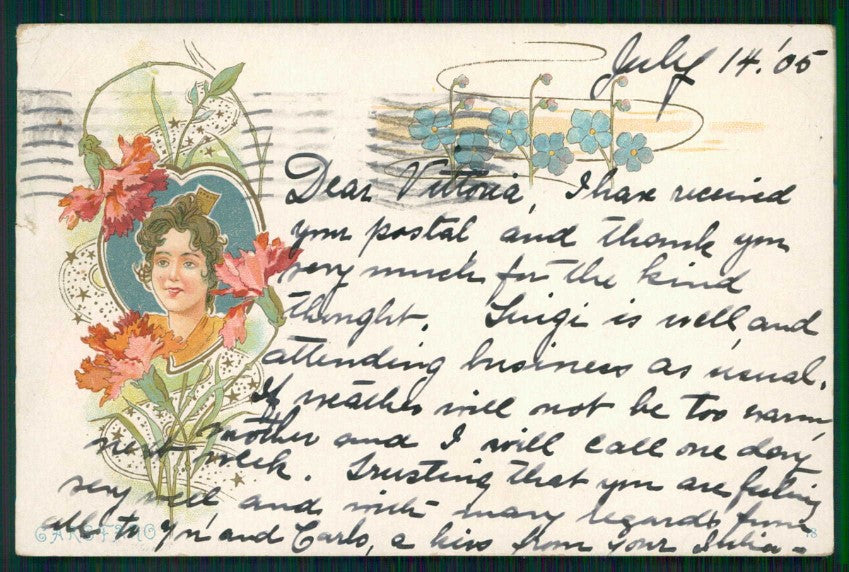 July 14. '05
Dear Vittoria, I have received
your postal and thank you
very much for the kind
thought. Luigi is well and
attending business as usual.
If weather will not be too warm
mother and I will call one day
next week. Trusting that you are feeling
very well and with many regards from
all to and Carlo, a kiss from your Julia -
GAROFANO
18